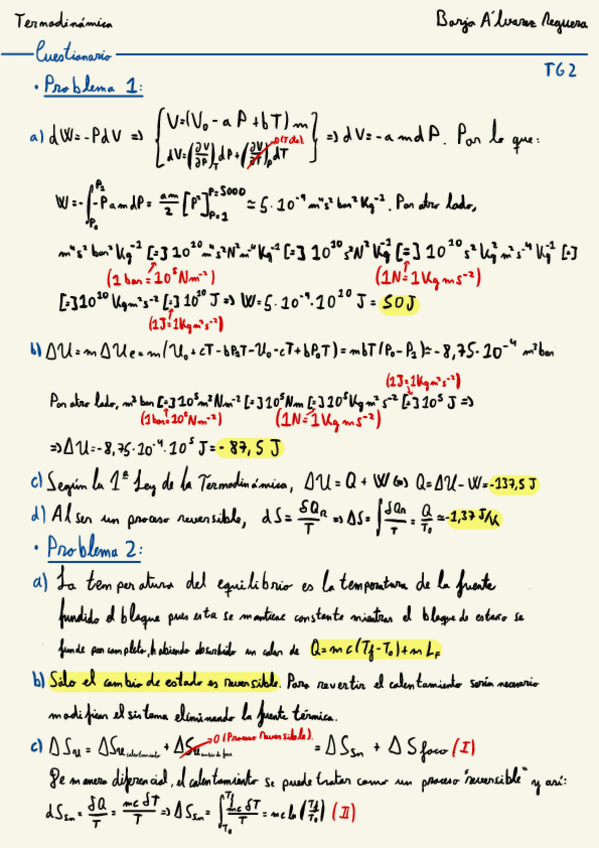 Termodinámica
Borja Álvarez Reguera
Cuestionario
TG2
• Problema 1:
a) dW=-PdV => { V=(V₀-aP+bT)m
dV=(∂V/∂P)_T dP+(∂V/∂T)_P dT } => dV=-amdP. Por lo que:
0(Tcte)
W=-∫_{P₀}^{P₁}-PamdP= am/2 [P²]_{P=1}^{P=5000} ≃5·10⁻⁹ m⁴s²bar²Kg⁻¹. Por otro lado,
m⁴s²bar²Kg⁻¹[=]10¹⁰m⁴s²N²m⁻⁴Kg⁻¹[=]10¹⁰s²N²Kg⁻¹[=]10¹⁰s²Kg²m²s⁻⁴Kg⁻¹[=]
(1bar=10⁵Nm⁻²) (1N=1Kgms⁻²)
[=]10¹⁰Kgm²s⁻²[=]10¹⁰J=> W=5·10⁻⁹·10¹⁰J=50J
(1J=1Kgm²s⁻²)
b) ΔU=mΔUe=m(U₀+cT-bP₁T-U₀-cT+bP₀T)=mbT(P₀-P₁)≃-8,75·10⁻⁴ m³bar
(1J=1Kgm²s⁻²)
Por otro lado, m³bar[=]10⁵m³Nm⁻²[=]10⁵Nm[=]10⁵Kgm²s⁻²[=]10⁵J=>
(1bar=10⁵Nm⁻²) (1N=1Kgms⁻²)
=>ΔU=-8,75·10⁻⁴·10⁵J=-87,5J
c) Según la 1ª Ley de la Termodinámica, ΔU=Q+W<=> Q=ΔU-W=-137,5J
d) Al ser un proceso reversible, dS=δQ_R/T =>ΔS=∫δQ_R/T=Q/T₀≃-1,37J/K
• Problema 2:
a) La temperatura del equilibrio es la temperatura de la fuente
fundido el bloque pues esta se mantiene constante mientras el bloque de estaño se
funde por completo, habiendo absorbido un calor de Q=mc(Tf-T₀)+mL_F
b) Sólo el cambio de estado es reversible. Para revertir el calentamiento sería necesario
modificar el sistema eliminando la fuente térmica.
0(Proceso reversible).
c) ΔSu=ΔSu calentamiento+ΔSu cambio de fase=ΔS_Sn+ΔS foco (I)
De manera diferencial, el calentamiento se puede tratar como un proceso "reversible" y así:
dS_Sn=δQ/T=mcδT/T=>ΔS_Sn=∫_{T₀}^{Tf}mcδT/T=mcln(Tf/T₀) (II)